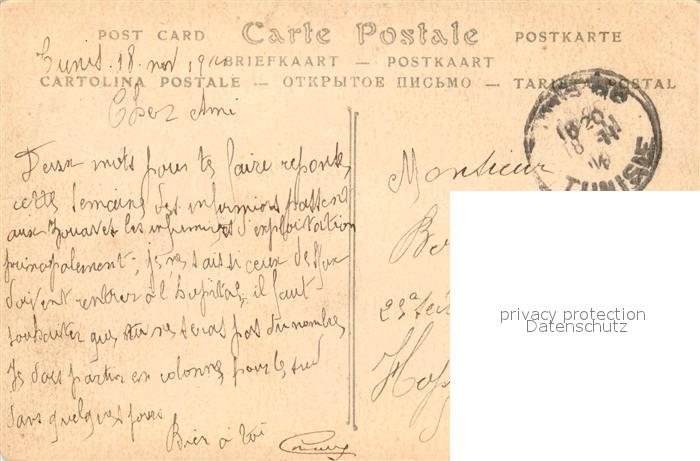 POST CARD Carte Postale POSTKARTE
BRIEFKAART — POSTKAART
CARTOLINA POSTALE — ОТКРЫТОЕ ПИСЬМО — TARJETA POSTAL
Tunis. 18. nov
Cher Ami
Deux mots pour te faire reponse
cette semaine des infirmiers passent
aux Zouaves les infirmiers d'exploitation
principalement; je ne sais si ceux de
doivent rentrer à l'hopital, il faut
souhaiter que tu ne seras pas du nombre
Je dois partir en colonne pour le sud
dans quelques jours
Bien à toi
Monsieur
TUNISIE
privacy protection
Datenschutz